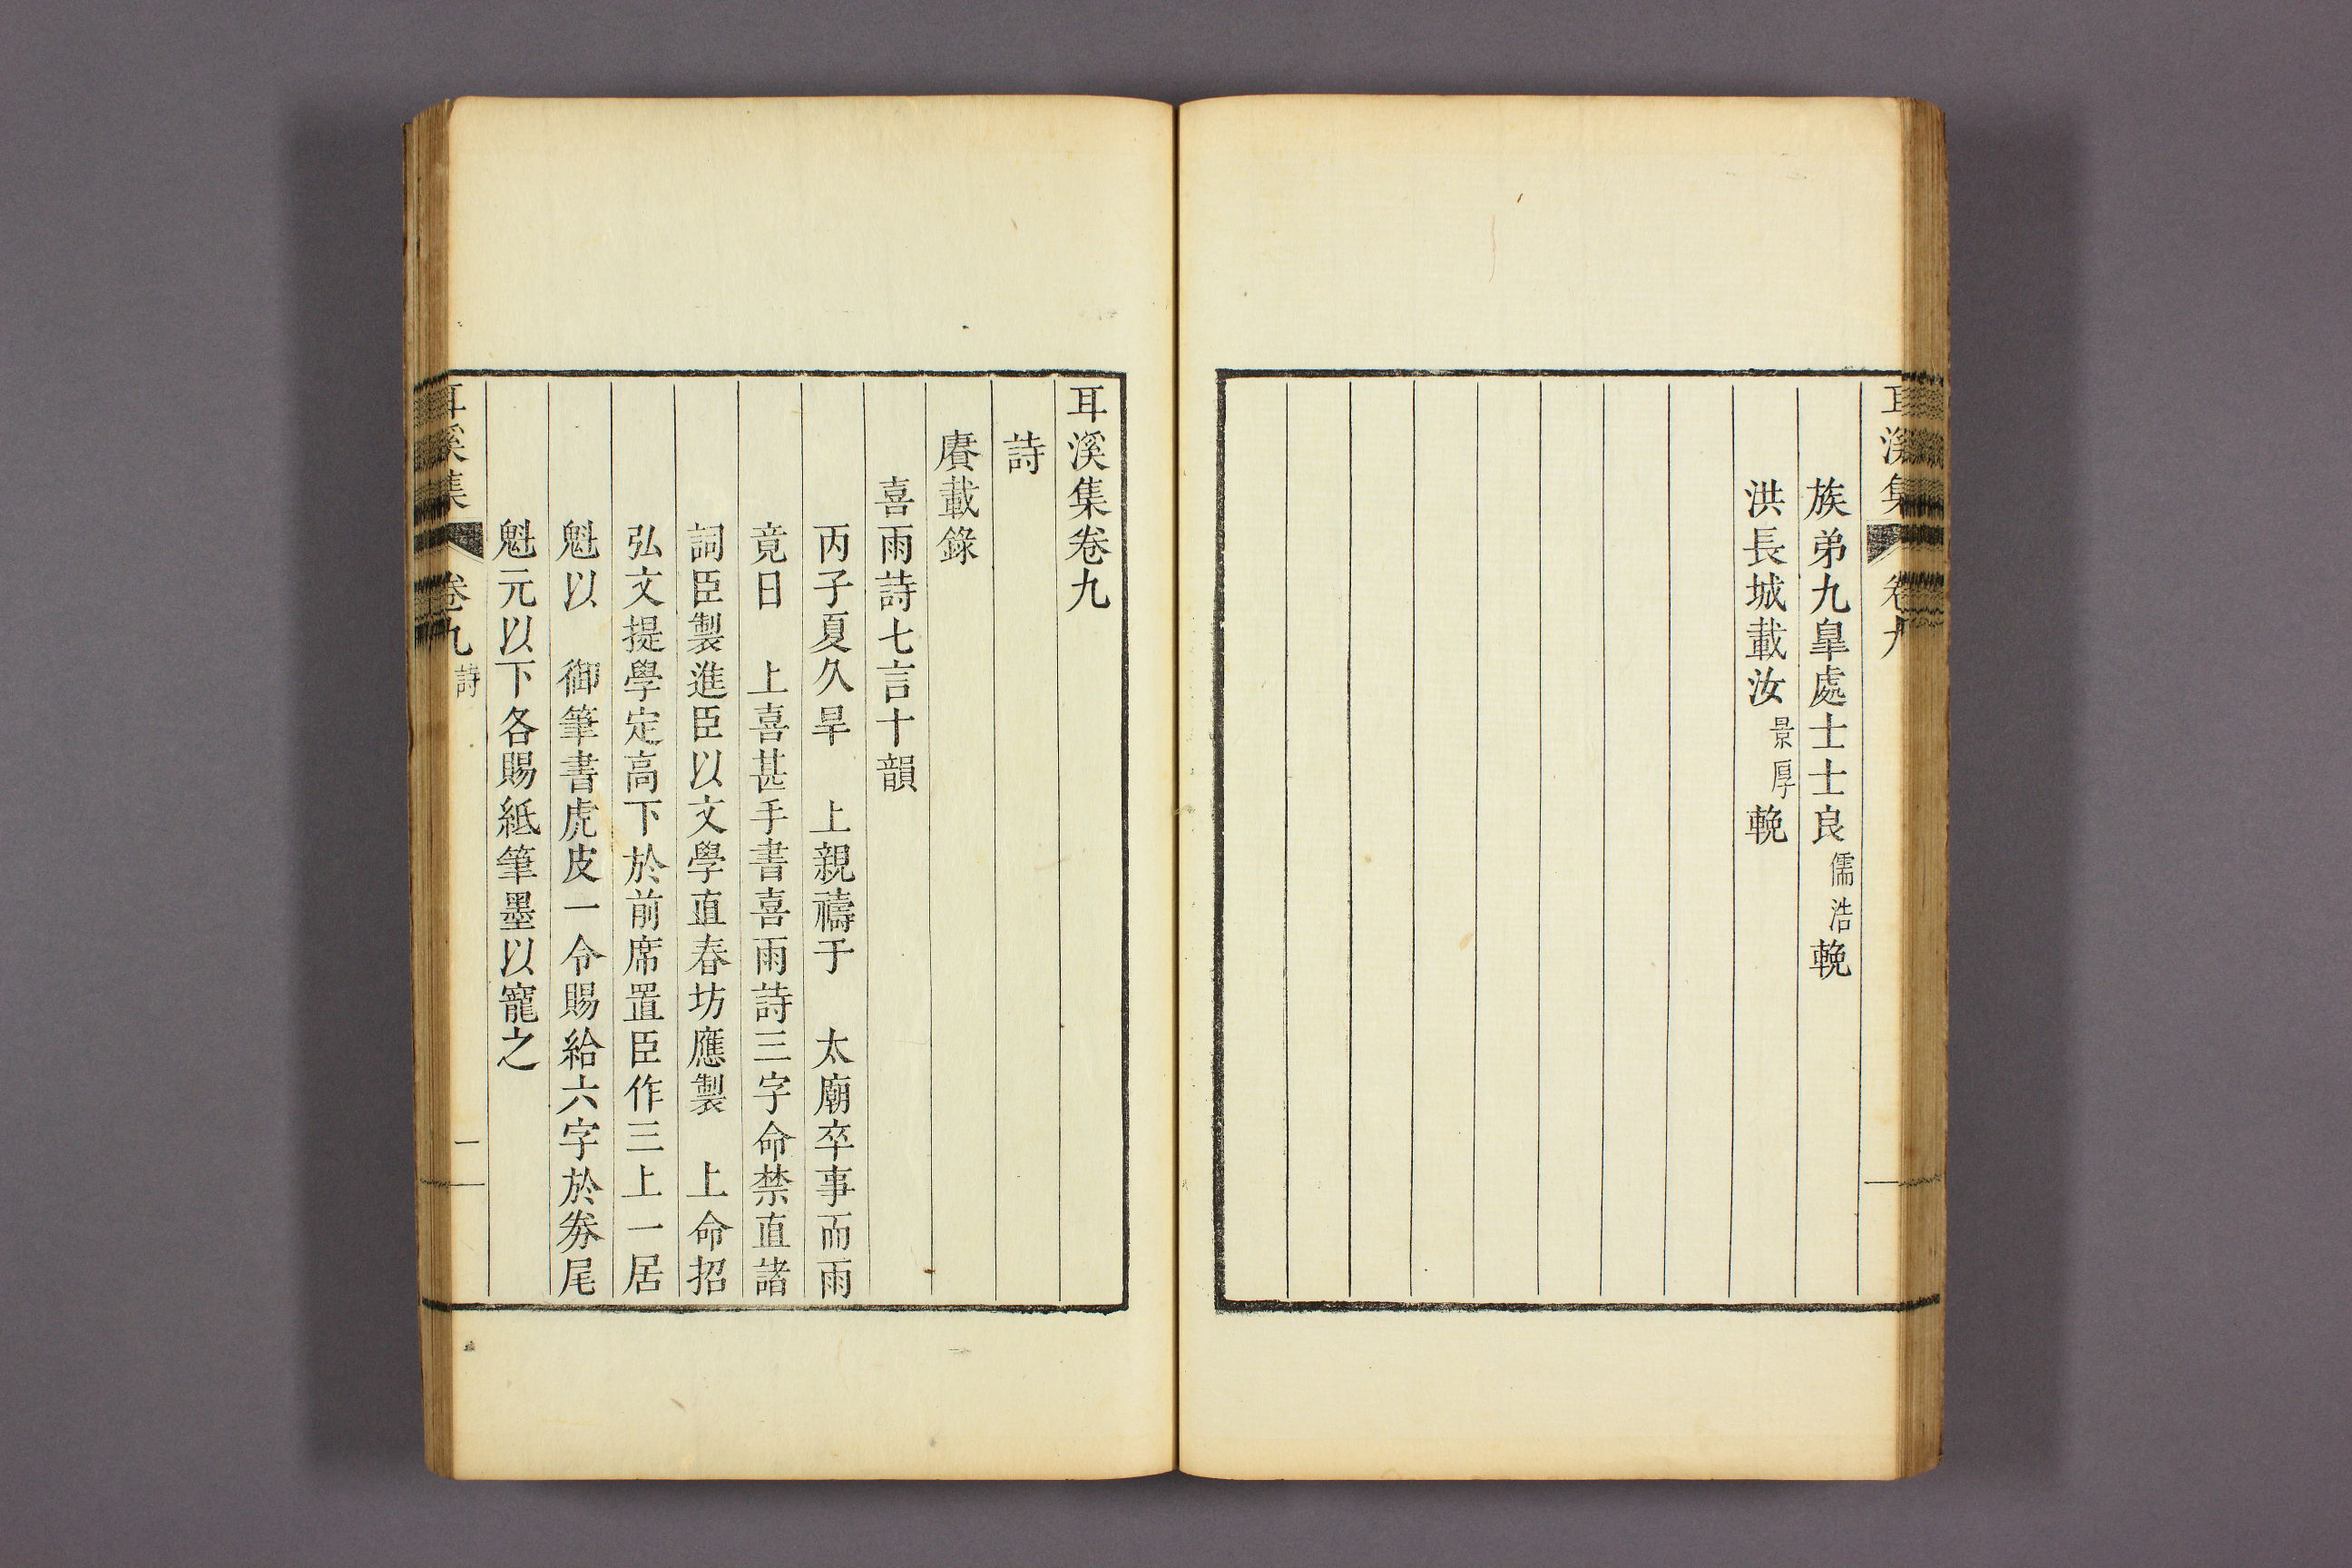 耳溪集 卷九
族弟九臯處士士良儒浩輓
洪長城載汝景厚輓
耳溪集卷九
詩
賡載錄
喜雨詩七言十韻
丙子夏久旱 上親禱于 太廟卒事而雨
竟日 上喜甚手書喜雨詩三字命禁直諸
詞臣製進臣以文學直春坊應製 上命招
弘文提學定高下於前席置臣作三上一居
魁以 御筆書虎皮一令賜給六字於券尾
魁元以下各賜紙筆墨以寵之
耳溪集 卷九 詩 一